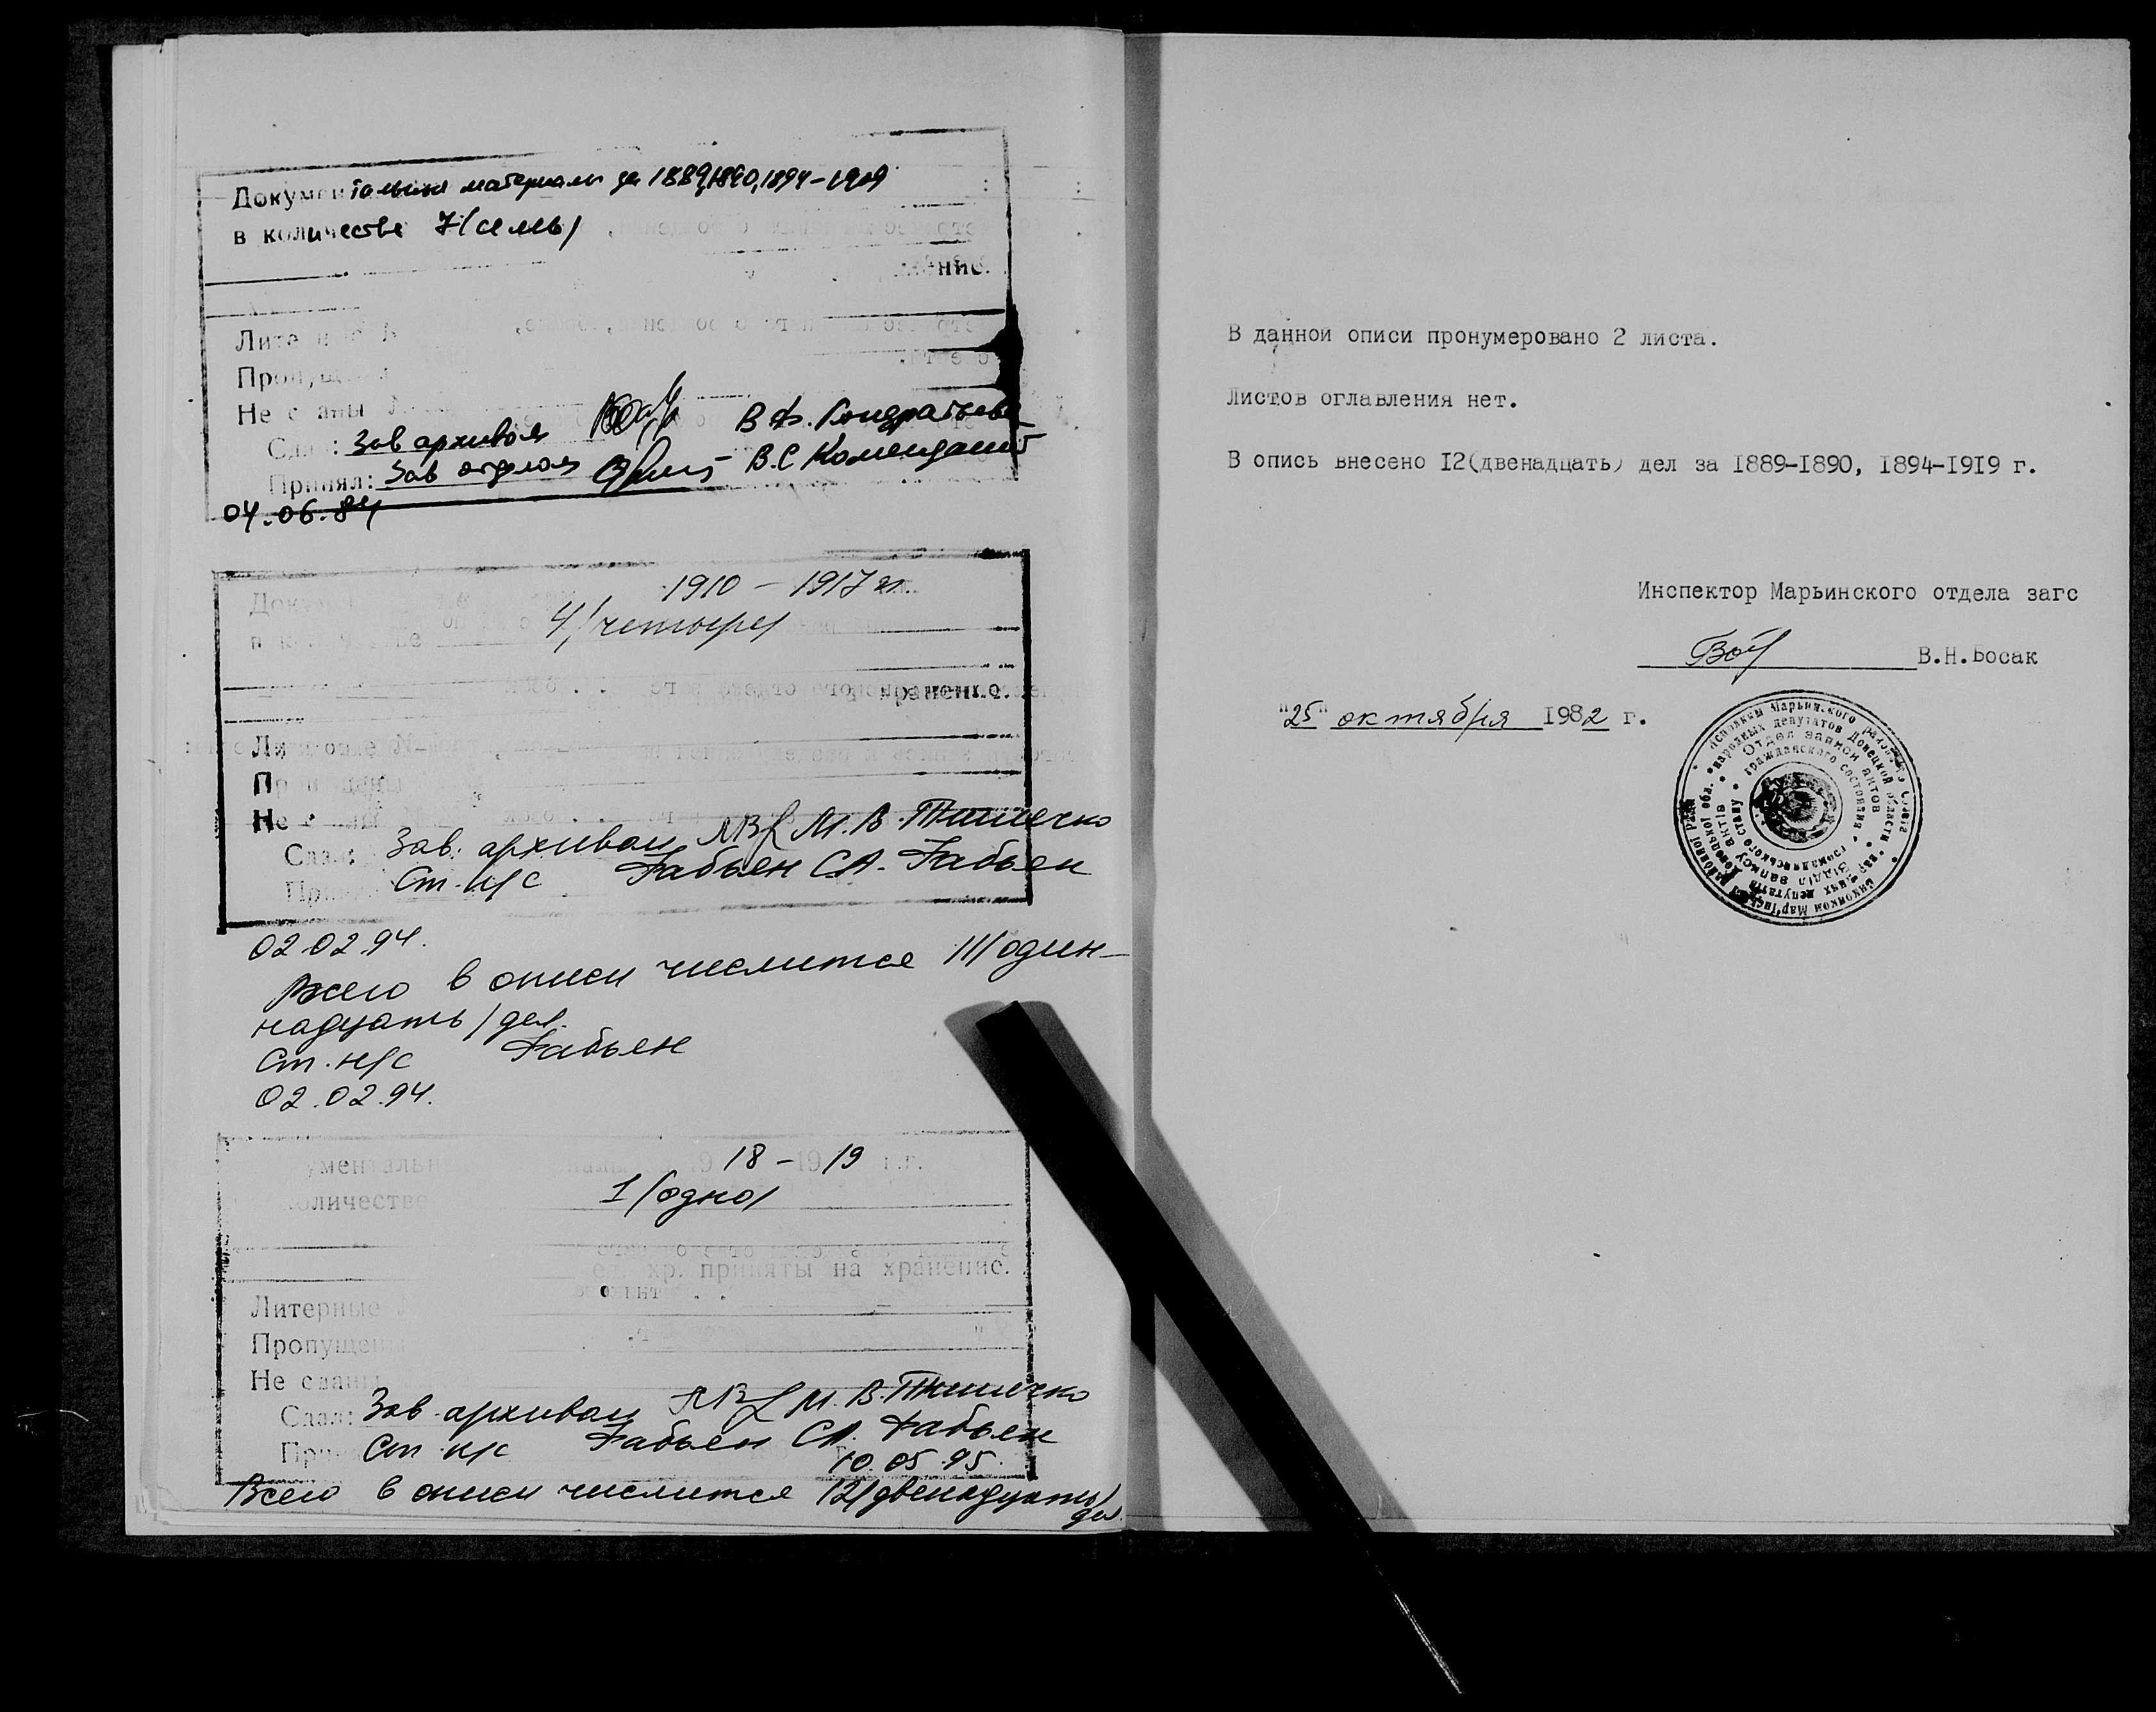 Документальные материалы за 1889,1890,1894-1909
в количестве 7(семь)
ние.
Литерные
Пропущены
Не сданы
Сдал: Зав архивом В.Ф. Кондратьева
Принял: Зав отделом В.С Комендант
04.06.84
1910 - 1917 гг.
4/четыре/
хранение.
Литерные №
Пропущены
Не сданы
Сдал: Зав. архивом М.В.
Ст. н/с Фабьен С.А. Фабьен
02.02.94.
Всего в описи числится 11/один-
надцать/ дел.
Ст. н/с Фабьен
02.02.94.
ументальн 19 18 - 19 19 г.г.
количестве 1/одно/
ед. хр. приняты на хранение.
Литерные
Пропущены
Не сданы
Сдал: Зав. архивом М.В.
Ст н/с Фабьен С.А. Фабьен
10.05.95.
Всего в описи числится 12/двенадцать/
дел.
В данной описи пронумеровано 2 листа.
Листов оглавления нет.
В опись внесено I2(двенадцать) дел за I889-I890, I894-I9I9 г.
Инспектор Марьинского отдела загс
В.Н.Босак
"25" октября 1982 г.
исполкома Марьинского районного Совета
народных депутатов Донецкой области
Отдел записи актов
гражданского состояния
Відділ запису актів
громадянського стану